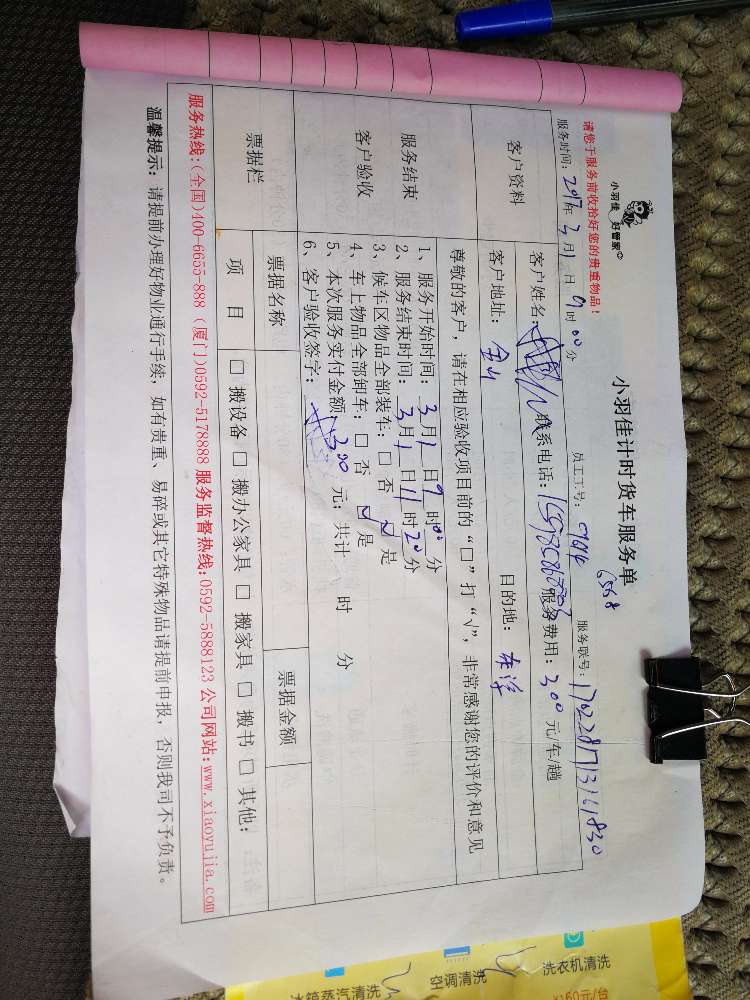 小羽佳 好管家
小羽佳计时货车服务单
6568
请您于服务前收拾好您的贵重物品！
服务时间：2017年3月1日9时00分 员工工号： 服务联号：
客户资料
客户姓名： 联系电话： 服务费用：300元/车/趟
客户地址：金山 目的地：
尊敬的客户，请在相应验收项目前的“□”打“√”，非常感谢您的评价和意见
服务结束
客户验收
1、服务开始时间：3月1日9时00分
2、服务结束时间：3月1日11时20分
3、候车区物品全部装车：□ 否 ☑ 是
4、车上物品全部卸车：□ 否 ☑ 是
5、本次服务实付金额：300元；共计 时 分
6、客户验收签字：
票据栏
票据名称 票据金额
项目 □ 搬设备 □ 搬办公家具 □ 搬家具 □ 搬书 □ 其他：
服务热线：(全国)400-6655-888（厦门)0592-5178888 服务监督热线：0592-5888123 公司网站：www.xiaoyujia.com
温馨提示：请提前办理好物业通行手续，如有贵重、易碎或其它特殊物品请提前申报，否则我司不予负责。
洗衣机清洗
空调清洗
冰箱蒸汽清洗
60元/台